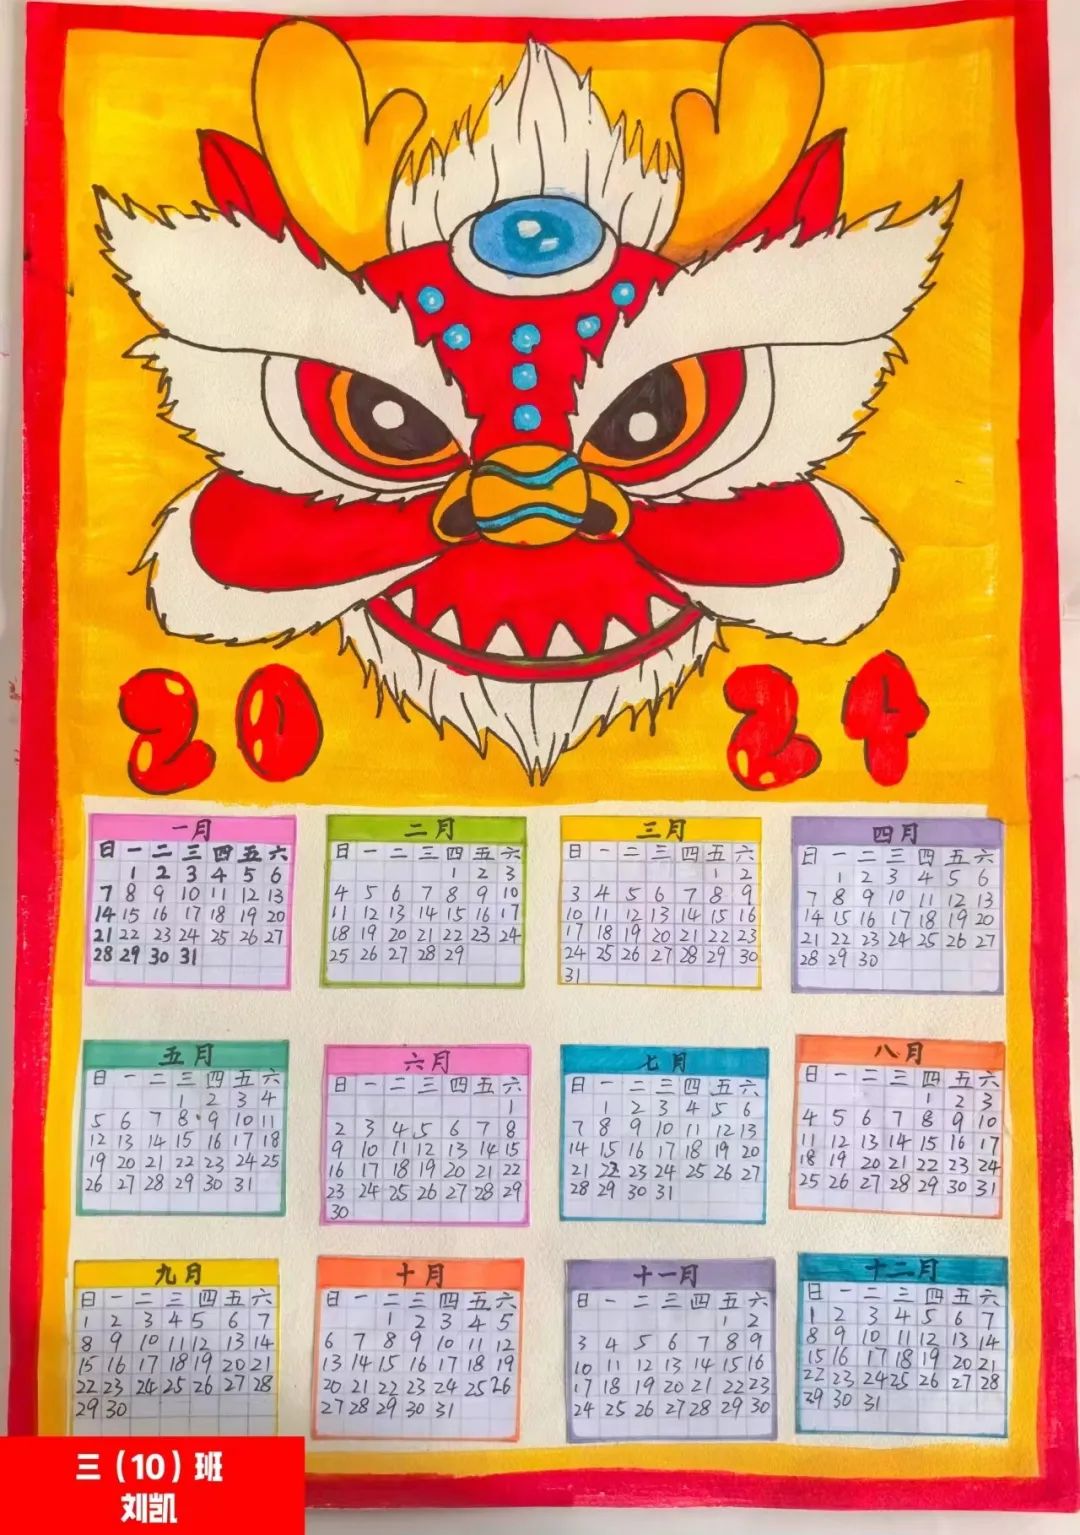 20 24
一月
日 一 二 三 四 五 六
1 2 3 4 5 6
7 8 9 10 11 12 13
14 15 16 17 18 19 20
21 22 23 24 25 26 27
28 29 30 31
二月
日 一 二 三 四 五 六
1 2 3
4 5 6 7 8 9 10
11 12 13 14 15 16 17
18 19 20 21 22 23 24
25 26 27 28 29
三月
日 一 二 三 四 五 六
1 2
3 4 5 6 7 8 9
10 11 12 13 14 15 16
17 18 19 20 21 22 23
24 25 26 27 28 29 30
31
四月
日 一 二 三 四 五 六
1 2 3 4 5 6
7 8 9 10 11 12 13
14 15 16 17 18 19 20
21 22 23 24 25 26 27
28 29 30
五月
日 一 二 三 四 五 六
1 2 3 4
5 6 7 8 9 10 11
12 13 14 15 16 17 18
19 20 21 22 23 24 25
26 27 28 29 30 31
六月
日 一 二 三 四 五 六
1
2 3 4 5 6 7 8
9 10 11 12 13 14 15
16 17 18 19 20 21 22
23 24 25 26 27 28 29
30
七月
日 一 二 三 四 五 六
1 2 3 4 5 6
7 8 9 10 11 12 13
14 15 16 17 18 19 20
21 22 23 24 25 26 27
28 29 30 31
八月
日 一 二 三 四 五 六
1 2 3
4 5 6 7 8 9 10
11 12 13 14 15 16 17
18 19 20 21 22 23 24
25 26 27 28 29 30 31
九月
日 一 二 三 四 五 六
1 2 3 4 5 6 7
8 9 10 11 12 13 14
15 16 17 18 19 20 21
22 23 24 25 26 27 28
29 30
十月
日 一 二 三 四 五 六
1 2 3 4 5
6 7 8 9 10 11 12
13 14 15 16 17 18 19
20 21 22 23 24 25 26
27 28 29 30 31
十一月
日 一 二 三 四 五 六
1 2
3 4 5 6 7 8 9
10 11 12 13 14 15 16
17 18 19 20 21 22 23
24 25 26 27 28 29 30
十二月
日 一 二 三 四 五 六
1 2 3 4 5 6 7
8 9 10 11 12 13 14
15 16 17 18 19 20 21
22 23 24 25 26 27 28
29 30 31
三（10）班
刘凯